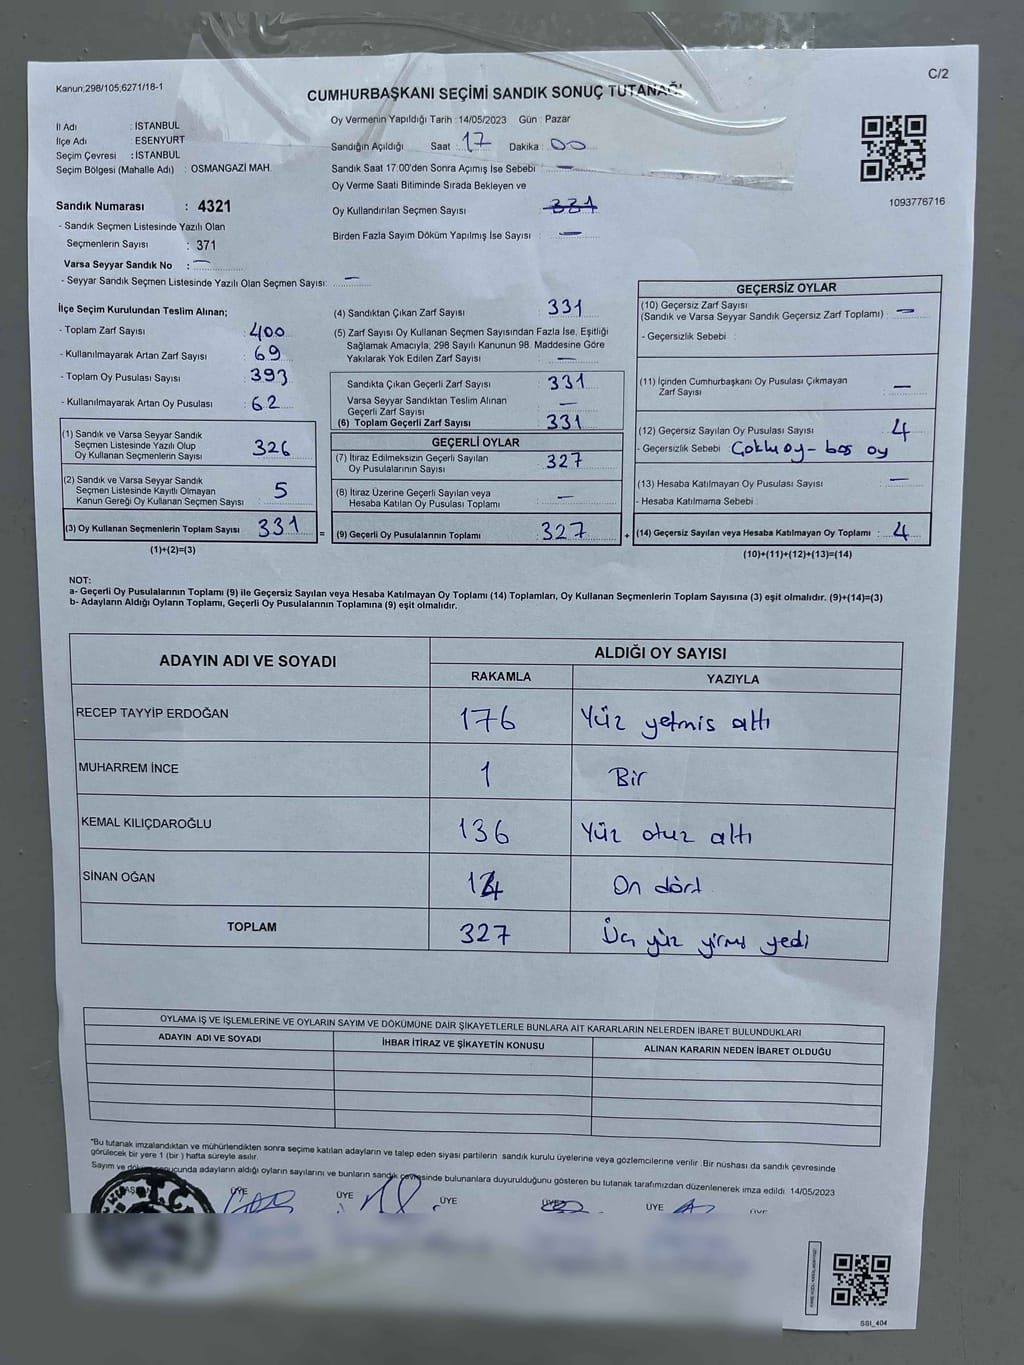 C/2
Kanun;298/105,6271/18-1
CUMHURBAŞKANI SEÇİMİ SANDIK SONUÇ TUTANAĞI
İl Adı : İSTANBUL
İlçe Adı : ESENYURT
Seçim Çevresi : İSTANBUL
Seçim Bölgesi (Mahalle Adı) : OSMANGAZİ MAH.
Oy Vermenin Yapıldığı Tarih : 14/05/2023 Gün : Pazar
Sandığın Açıldığı Saat : 17 Dakika : 00
Sandık Saat 17:00'den Sonra Açımış İse Sebebi : —
Oy Verme Saati Bitiminde Sırada Bekleyen ve
Oy Kullandırılan Seçmen Sayısı : 331
Birden Fazla Sayım Döküm Yapılmış İse Sayısı : —
1093776716
Sandık Numarası : 4321
- Sandık Seçmen Listesinde Yazılı Olan
Seçmenlerin Sayısı : 371
Varsa Seyyar Sandık No : —
- Seyyar Sandık Seçmen Listesinde Yazılı Olan Seçmen Sayısı: —
İlçe Seçim Kurulundan Teslim Alınan;
- Toplam Zarf Sayısı : 400
- Kullanılmayarak Artan Zarf Sayısı : 69
- Toplam Oy Pusulası Sayısı : 393
- Kullanılmayarak Artan Oy Pusulası : 62
(1) Sandık ve Varsa Seyyar Sandık
Seçmen Listesinde Yazılı Olup
Oy Kullanan Seçmenlerin Sayısı 326
(2) Sandık ve Varsa Seyyar Sandık
Seçmen Listesinde Kayıtlı Olmayan
Kanun Gereği Oy Kullanan Seçmen Sayısı 5
(3) Oy Kullanan Seçmenlerin Toplam Sayısı 331
(1)+(2)=(3)
=
(4) Sandıktan Çıkan Zarf Sayısı : 331
(5) Zarf Sayısı Oy Kullanan Seçmen Sayısından Fazla İse, Eşitliği
Sağlamak Amacıyla; 298 Sayılı Kanunun 98. Maddesine Göre
Yakılarak Yok Edilen Zarf Sayısı : —
Sandıkta Çıkan Geçerli Zarf Sayısı : 331
Varsa Seyyar Sandıktan Teslim Alınan
Geçerli Zarf Sayısı : —
(6) Toplam Geçerli Zarf Sayısı : 331
GEÇERLİ OYLAR
(7) İtiraz Edilmeksizin Geçerli Sayılan
Oy Pusulalarının Sayısı : 327
(8) İtiraz Üzerine Geçerli Sayılan veya
Hesaba Katılan Oy Pusulası Toplamı : —
(9) Geçerli Oy Pusulalarının Toplamı : 327
+
GEÇERSİZ OYLAR
(10) Geçersiz Zarf Sayısı
(Sandık ve Varsa Seyyar Sandık Geçersiz Zarf Toplamı) : —
- Geçersizlik Sebebi :
(11) İçinden Cumhurbaşkanı Oy Pusulası Çıkmayan
Zarf Sayısı : —
(12) Geçersiz Sayılan Oy Pusulası Sayısı : 4
- Geçersizlik Sebebi : Çoklu oy - boş oy
(13) Hesaba Katılmayan Oy Pusulası Sayısı : —
- Hesaba Katılmama Sebebi :
(14) Geçersiz Sayılan veya Hesaba Katılmayan Oy Toplamı : 4
(10)+(11)+(12)+(13)=(14)
NOT:
a- Geçerli Oy Pusulalarının Toplamı (9) ile Geçersiz Sayılan veya Hesaba Katılmayan Oy Toplamı (14) Toplamları, Oy Kullanan Seçmenlerin Toplam Sayısına (3) eşit olmalıdır. (9)+(14)=(3)
b- Adayların Aldığı Oyların Toplamı, Geçerli Oy Pusulalarının Toplamına (9) eşit olmalıdır.
ADAYIN ADI VE SOYADI
ALDIĞI OY SAYISI
RAKAMLA YAZIYLA
RECEP TAYYİP ERDOĞAN 176 Yüz yetmis altı
MUHARREM İNCE 1 Bir
KEMAL KILIÇDAROĞLU 136 Yüz otuz altı
SİNAN OĞAN 14 On dört
TOPLAM 327 Üç yüz yirmi yedi
OYLAMA İŞ VE İŞLEMLERİNE VE OYLARIN SAYIM VE DÖKÜMÜNE DAİR ŞİKAYETLERLE BUNLARA AİT KARARLARIN NELERDEN İBARET BULUNDUKLARI
ADAYIN ADI VE SOYADI İHBAR İTİRAZ VE ŞİKAYETİN KONUSU ALINAN KARARIN NEDEN İBARET OLDUĞU
*Bu tutanak imzalandıktan ve mühürlendikten sonra seçime katılan adayların ve talep eden siyasi partilerin sandık kurulu üyelerine veya gözlemcilerine verilir. Bir nüshası da sandık çevresinde
görülecek bir yere 1 (bir) hafta süreyle asılır.
Sayım ve döküm sonucunda adayların aldığı oyların sayılarını ve bunların sandık çevresinde bulunanlara duyurulduğunu gösteren bu tutanak tarafımızdan düzenlenerek imza edildi. 14/05/2023
ÜYE ÜYE ÜYE ÜYE ÜYE ÜYE
SSI_404